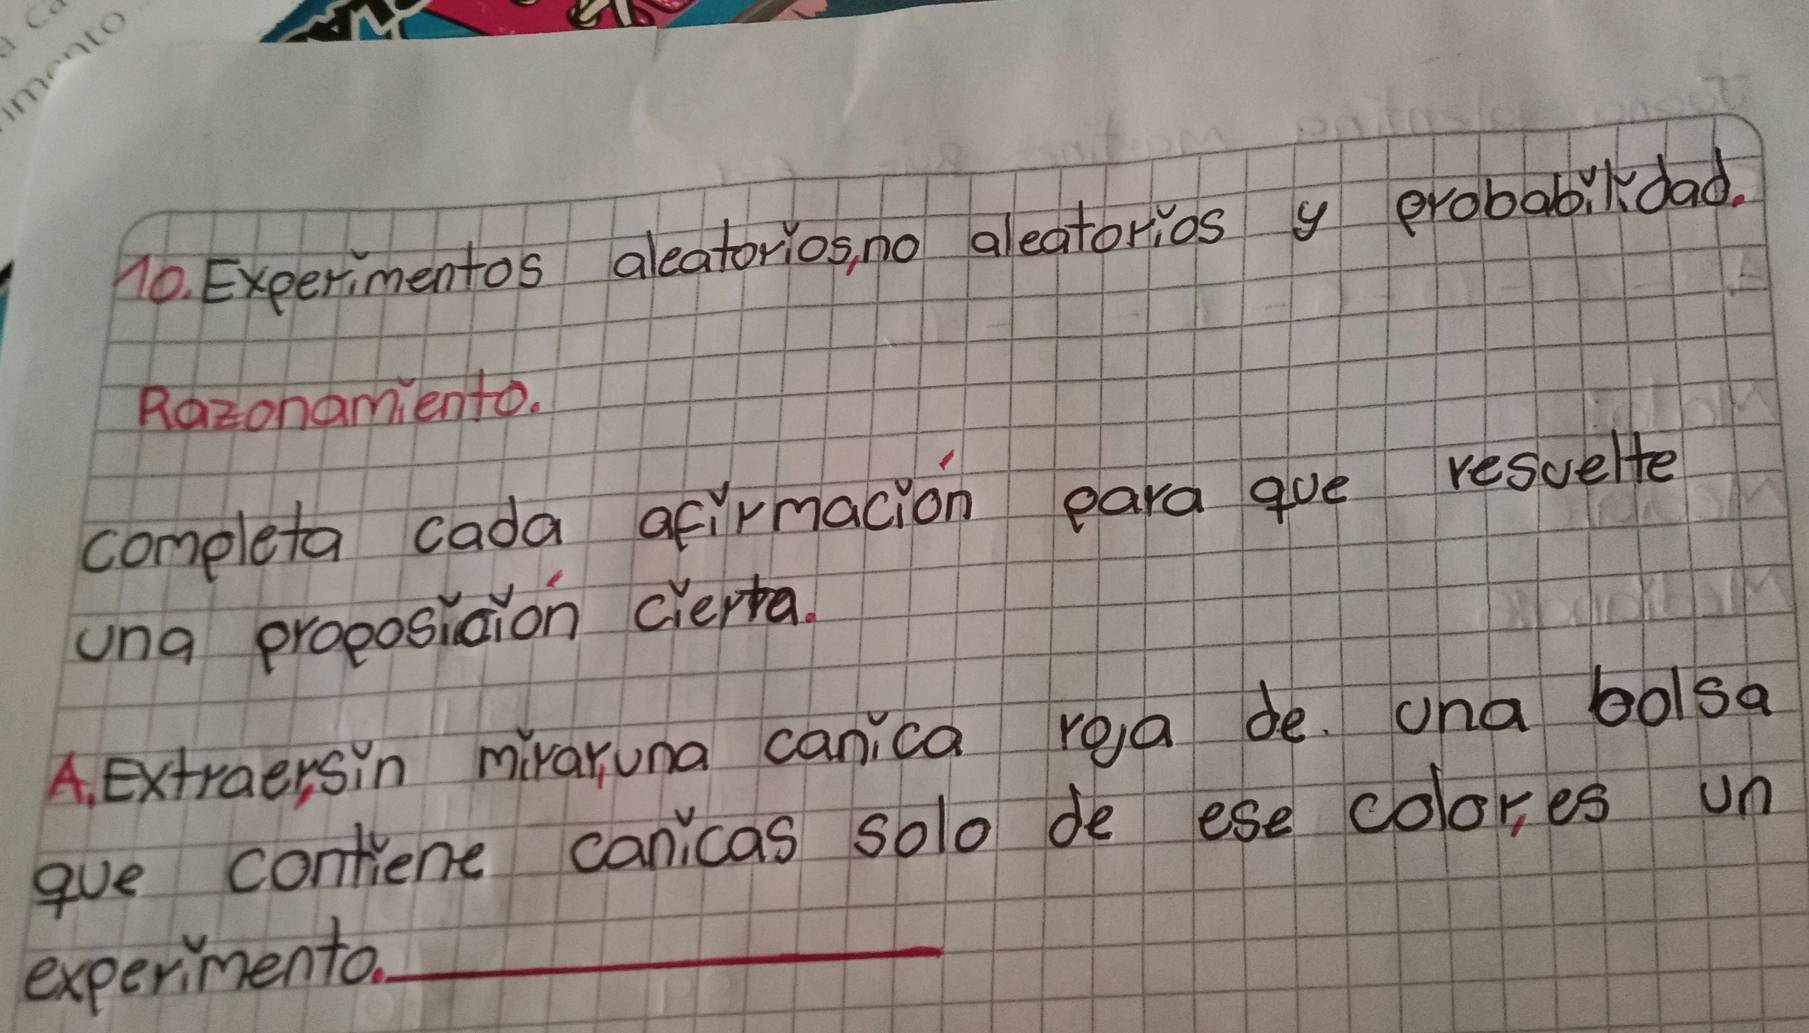 10. Experimentos aleatorios, no aleatorios y probabilidad.
Razonamiento.
completa cada afirmación para que resuelte
una proposición cierta.
A. Extraer, sin mirar, una canica roja de. una bolsa
que contiene canicas solo de ese color, es un
experimento.